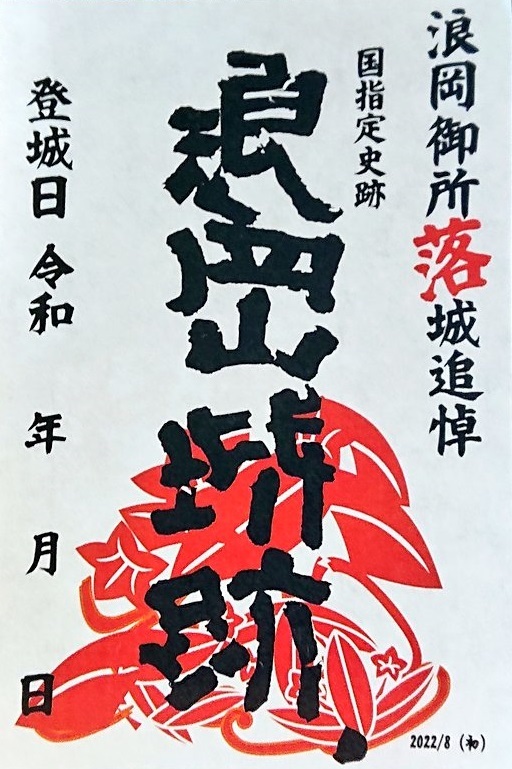 浪岡御所落城追悼
国指定史跡
浪岡城跡
登城日 令和 年 月 日
2022/8（初）